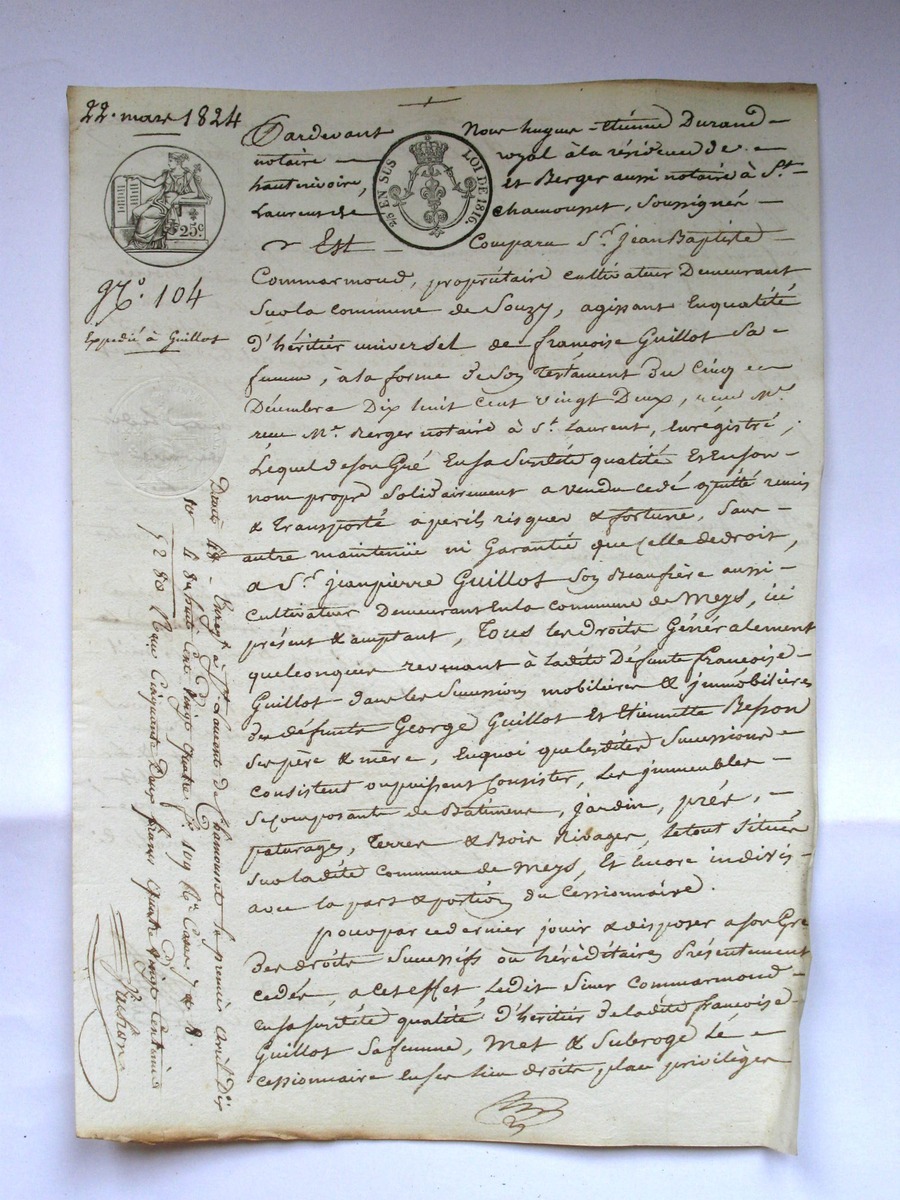 22. mars 1824
25 EN SUS LOI DE 1816.
25.c
N.º 104
Expedié à Guillot
Pardevant Nous hugue-étiénne Durand
notaire royal à la résidence de
hauterivoire, et Berger aussi notaire à S.t
Laurent de chamousset, soussignés
Est Comparu S.r Jean Baptiste
Commarmond, propriétaire cultivateur Demeurant
Sur la commune de Souzy, agissant En qualité
D'héritier universel de françoise Guillot Sa
femme, à la forme de Son Testament du Cinq
Décembre Dix huit Cent vingt Deux, reçu M.e
reçu M.e Berger notaire à S.t Laurent, Enrégistré,
Lequel de son Gré En sa Susdite qualité Et En son
nom propre Solidairement a vendu cedé quitté remis
& transporté à perils risques & fortune, Sans
autre maintenüe ni Garantie que Celle de droit,
a S.r jeanpierre Guillot Son Beaufrère aussi
Cultivateur Demeurant En la commune de Meys, ici
présent & acceptant, Tous les droits Généralement
quelconques revenant à ladite Défunte françoise
Guillot dans les Successions mobilières & jmmobilières
des défunts George Guillot Et Etiennette Besson
Ses père & mère, En quoi que lesdites Successions
Consistent ou puissent Consister, Les jmmeubles
Se composants de Batimens, jardin, prés,
paturages, Terres & Bois Rivages, le tout Situés
Sur ladite Commune de Meys, Et Encore indivis
avec la part & portion du Cessionnaire.
pour par ce dernier jouir & disposer a son Gré
des droits Successifs ou héréditaires présentement
cedés, a cet effet Ledit Sieur Commarmond
En sa susdite qualité D'héritier de ladite françoise
Guillot Sa femme, Met & Subroge Le
Cessionnaire En ses lieu droits, place privilèges
Enreg.é a S.t Laurent de Chamousset le premier avril Dix
huit Cent vingt quatre f.o 109 R.o Cases 7 & 8.
52 80 Reçu Cinquante Deux francs quatre vingt Centimes